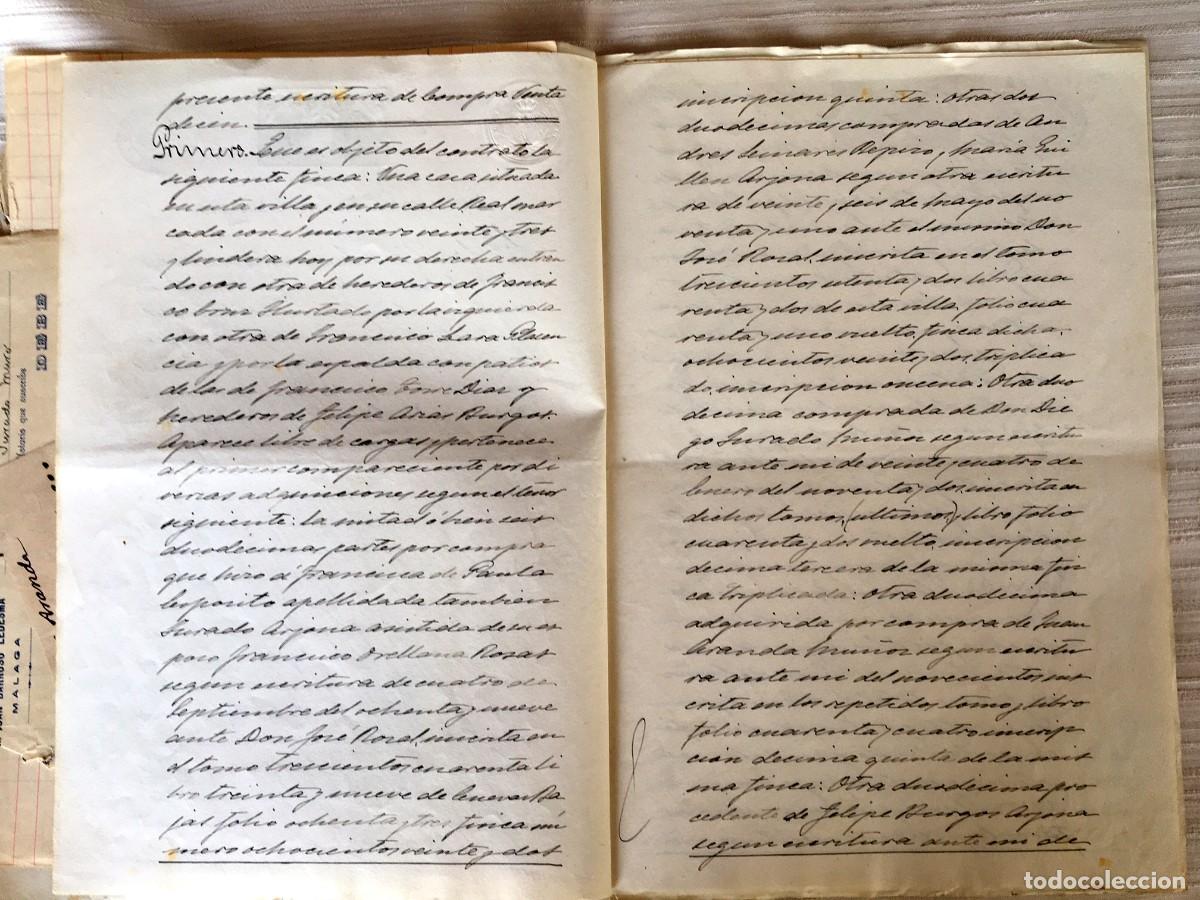 presente escritura de Compra Venta
dicen.
Primero. Que es objeto del contrato la
siguiente finca: Una casa situada
en esta villa y en su calle Real mar
cada con el número veinte y tres
y lindera hoy por su derecha entran
do con otra de herederos de Francis
co Hurtado por la izquierda
con otra de Francisco Lara Plasen
cia y por la espalda con patios
de las de Francisco Diaz y
herederos de Felipe Arias Burgos.
Aparece libre de cargas y pertenece
al primer compareciente por di
versas adquiciones segun el tenor
siguiente: la mitad ó bien seis
duodecimas partes por compra
que hizo á Francisca de Paula
Esposito apellidada tambien
Jurado Arjona asistida de su es
poso Francisco Orellana Rosas
segun escritura de cuatro de
Septiembre del ochenta y nueve
ante Don José Rosal, inscrita en
el tomo trescientos cuarenta li
bro treinta y nueve de Cuevas Ba
jas folio ochenta y tres finca nú
mero ochocientos veinte y dos
inscripcion quinta: Otras dos
duodecimas compradas de An
dres Repiso y María Gui
llen Arjona segun otra escritu
ra de veinte y seis de Mayo del no
venta y uno ante el mismo Don
José Rosal, inscrita en el tomo
trescientos setenta y dos libro cua
renta y dos de esta villa, folio cua
renta y uno vuelto, finca dicha,
ochocientos veinte y dos, triplica
do, inscripcion oncena: Otra duo
decima comprada de Don Die
go Jurado Muñoz segun escritu
ra ante mi de veinte y cuatro de
Enero del noventa y dos, inscrita en
dichos tomo, (ultimos) libro folio
cuarenta y dos vuelto, inscripcion
decima tercera de la misma fin
ca triplicada: Otra duodecima
adquirida por compra de Juan
Aranda Muñoz segun escritu
ra ante mi del novecientos, ins
crita en los repetidos tomo y libro
folio cuarenta y cuatro inscrip
cion decima quinta de la mis
ma finca: Otra duodecima pro
cedente de Felipe Burgos Arjona
segun escritura ante mi de
DEBE
Notario que suscribe
Jurado Muñoz
Aranda
JUAN BARROSO LEDESMA
MALAGA
todocoleccion